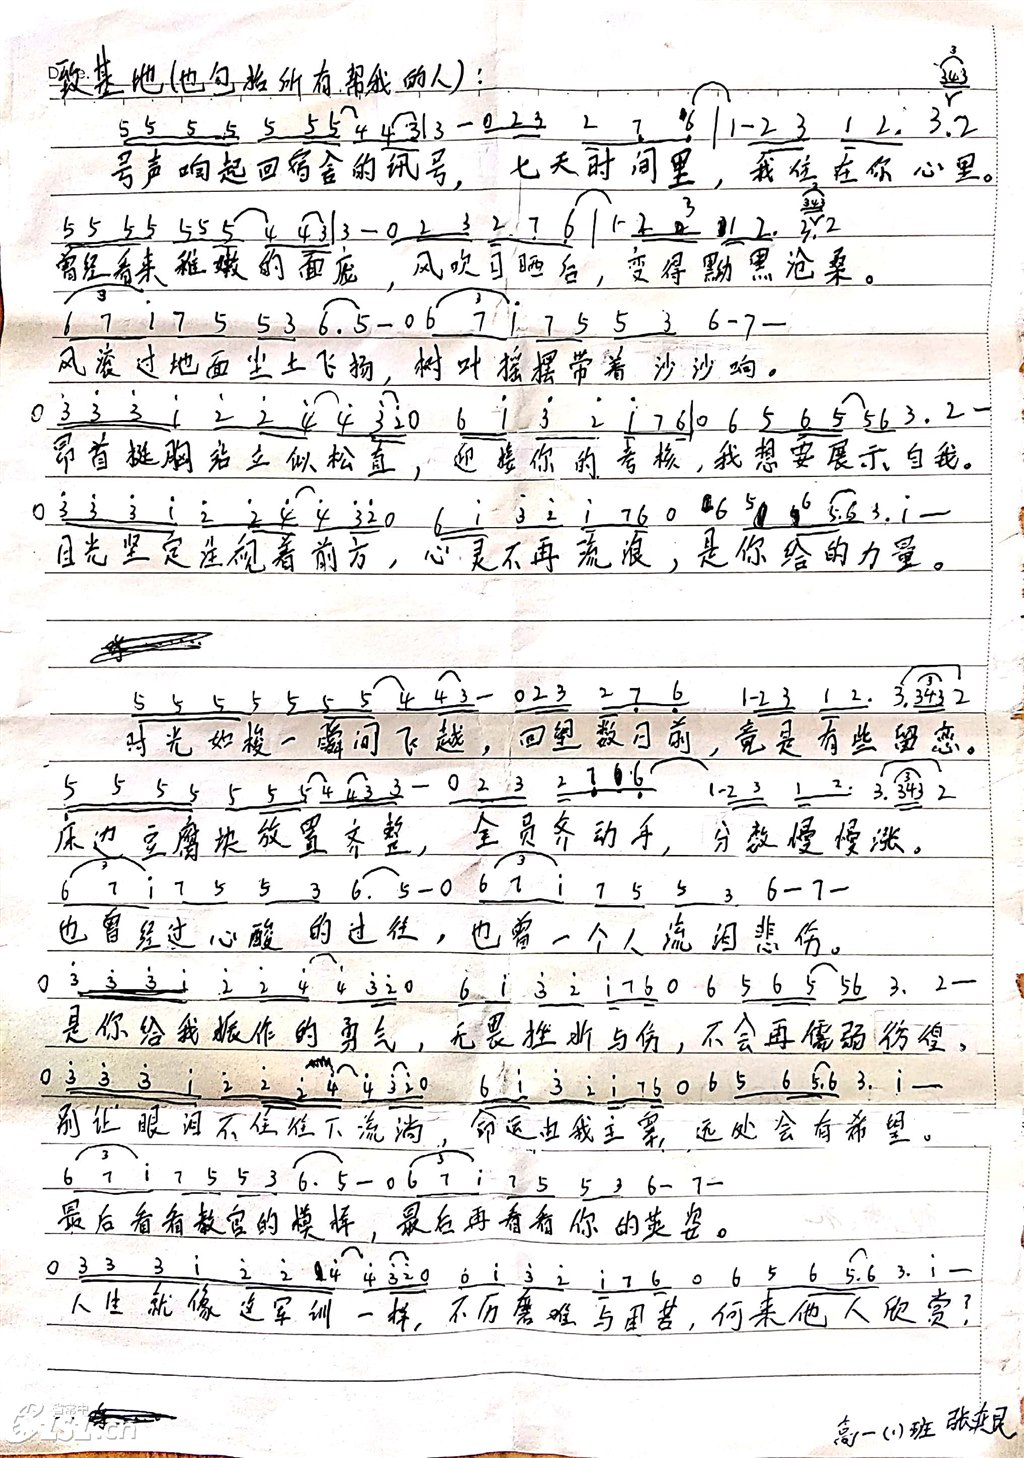 致基地(也包括所有帮我的人):
3
343
5 5 5 5 5 5 5 4 4 3|3 - 0 2 3 2 7 6|1-2 3 1 2. 3.2
号声响起回宿舍的讯号, 七天时间里, 我住在你心里。
3 343
5 5 5 5 5 5 5 4 4 3|3 - 0 2 3 2 7 6|1-2 1 2. 3.2
曾经看来稚嫩的面庞, 风吹日晒后, 变得黝黑沧桑。
3 3
6 7 i 7 5 5 3 6. 5 - 0 6 7 i 7 5 5 3 6-7-
风滚过地面尘土飞扬, 树叶摇摆带着沙沙响。
0 3 3 3 1 2 2 4 4 3 2 0 6 i 3 2 i 7 6|0 6 5 6 5 5 6 3. 2 -
昂首挺胸站立似松直, 迎接你的考核, 我想要展示自我。
0 3 3 3 1 2 2 4 4 3 2 0 6 i 3 2 i 7 6 0 6 5 6 5.6 3. i -
目光坚定注视着前方, 心灵不再流浪, 是你给的力量。
5 5 5 5 5 5 5 4 4 3 - 0 2 3 2 7 6 1-2 3 1 2. 3.343 2
时光如梭一瞬间飞越, 回望数日前, 竟是有些留恋。
5 5 5 5 5 5 5 4 4 3 3 - 0 2 3 2 7 6 1-2 3 1 2. 3.343 2
床边豆腐块放置齐整, 全员齐动手, 分数慢慢涨。
3 3
6 7 i 7 5 5 3 6. 5 - 0 6 7 i 7 5 5 3 6-7-
也曾经过心酸的过往, 也曾一个人流泪悲伤。
0 3 3 3 1 2 2 4 4 3 2 0 6 i 3 2 i 7 6 0 6 5 6 5 5 6 3. 2 -
是你给我振作的勇气, 无畏挫折与伤, 不会再懦弱彷徨。
0 3 3 3 1 2 2 2 4 4 3 2 0 6 i 3 2 i 7 6 0 6 5 6 5.6 3. i -
别让眼泪不住往下流淌, 命运由我主宰, 远处会有希望。
3 3
6 7 i 7 5 5 3 6. 5 - 0 6 7 i 7 5 5 3 6-7-
最后看看教官的模样, 最后再看看你的英姿。
0 3 3 3 1 2 2 4 4 3 2 0 6 i 3 2 i 7 6 0 6 5 6 5.6 3. i -
人生就像这军训一样, 不历磨难与困苦, 何来他人欣赏?
省常中
高一(1)班